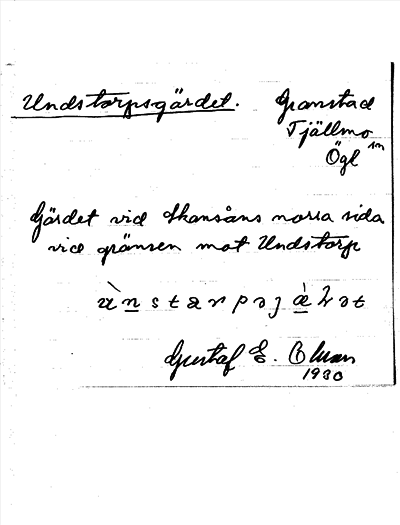 Undstorpsgärdet. Granstad
Tjällmo sn
Ögl
Gärdet vid Skansåns norra sida
vid gränsen mot Undstorp
Gustaf E.
1930